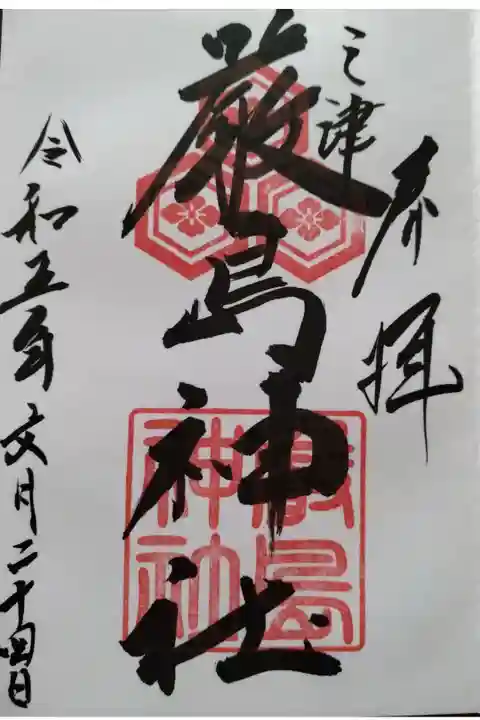 奉拝
三津
厳島神社
厳島神社
令和五年文月二十四日